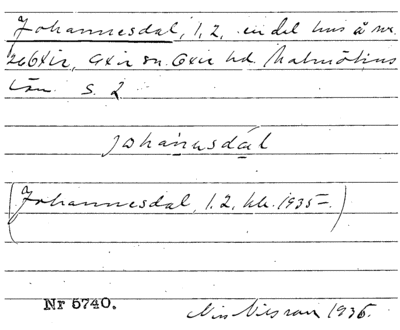 Johannesdal, 1, 2, en del hus å nr
26 Oxie, Oxie sn. Oxie hd. Malmöhus
län S. 2
johanesdál
(Johannesdal, 1. 2. kbr. 1935-.)
Nr 5740.
Nils Nilsson 1936.